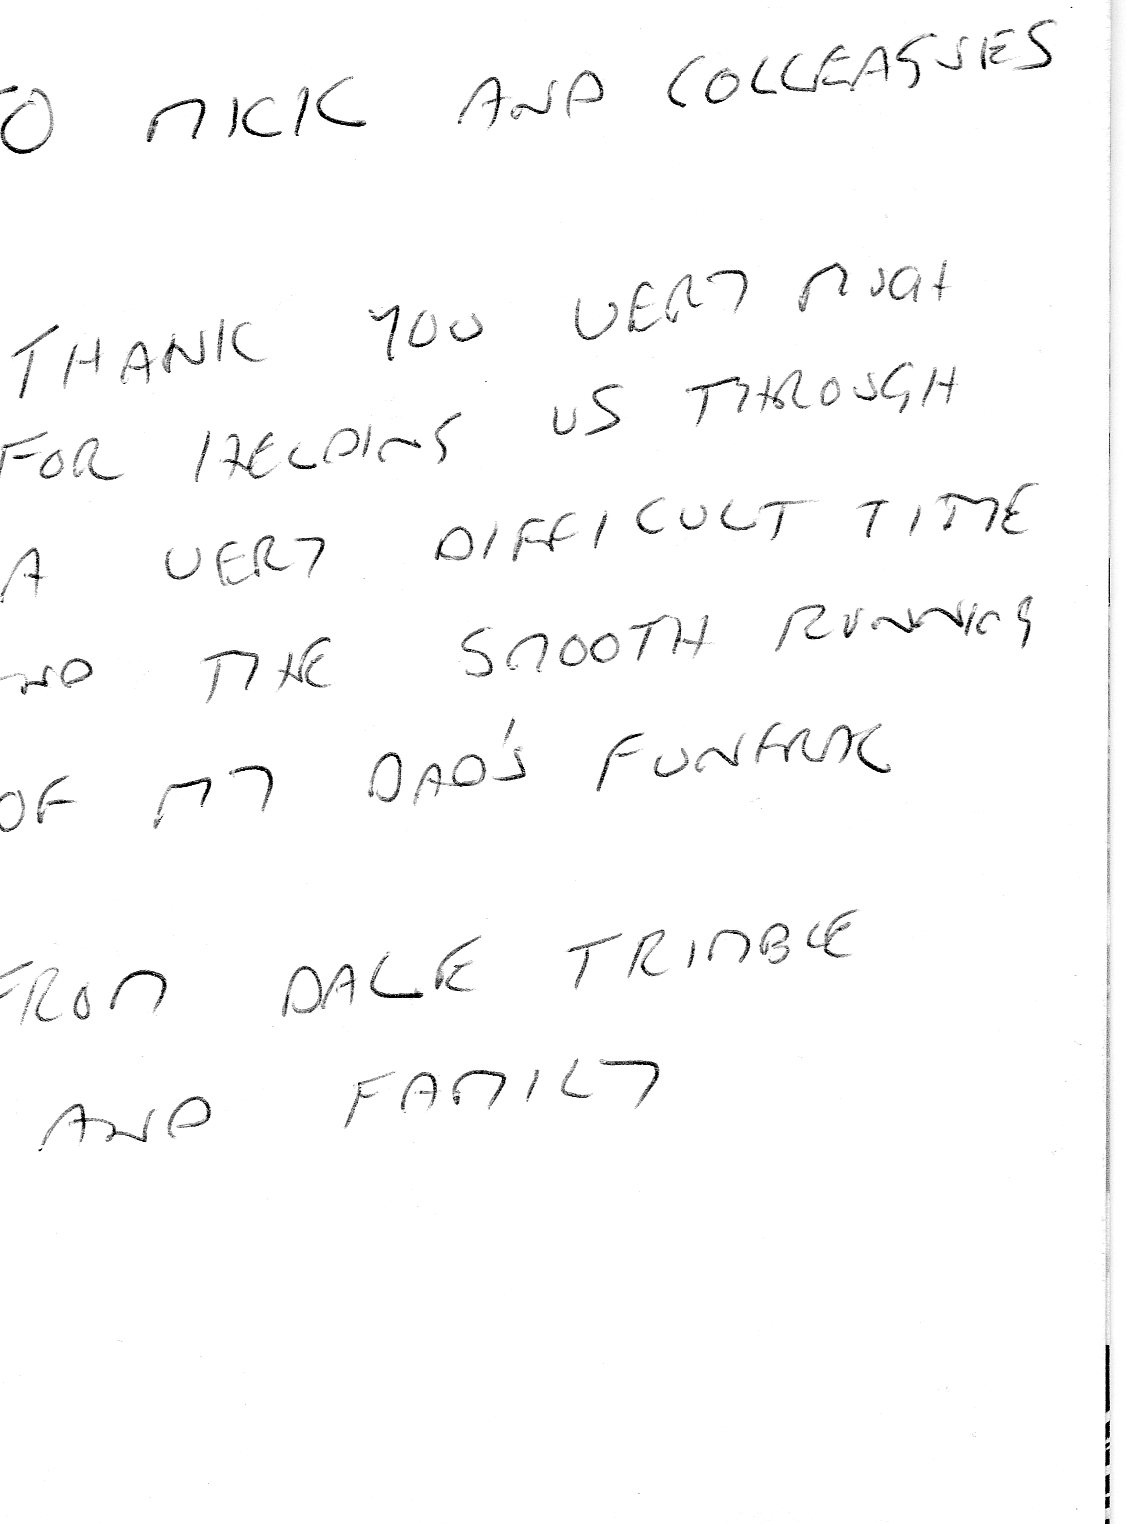 TO MICK AND COLLEAGUES
THANK YOU VERY MUCH
FOR HELPING US THROUGH
A VERY DIFFICULT TIME
AND THE SMOOTH RUNNING
OF MY DAD'S FUNERAL
FROM DALE TRIMBLE
AND FAMILY